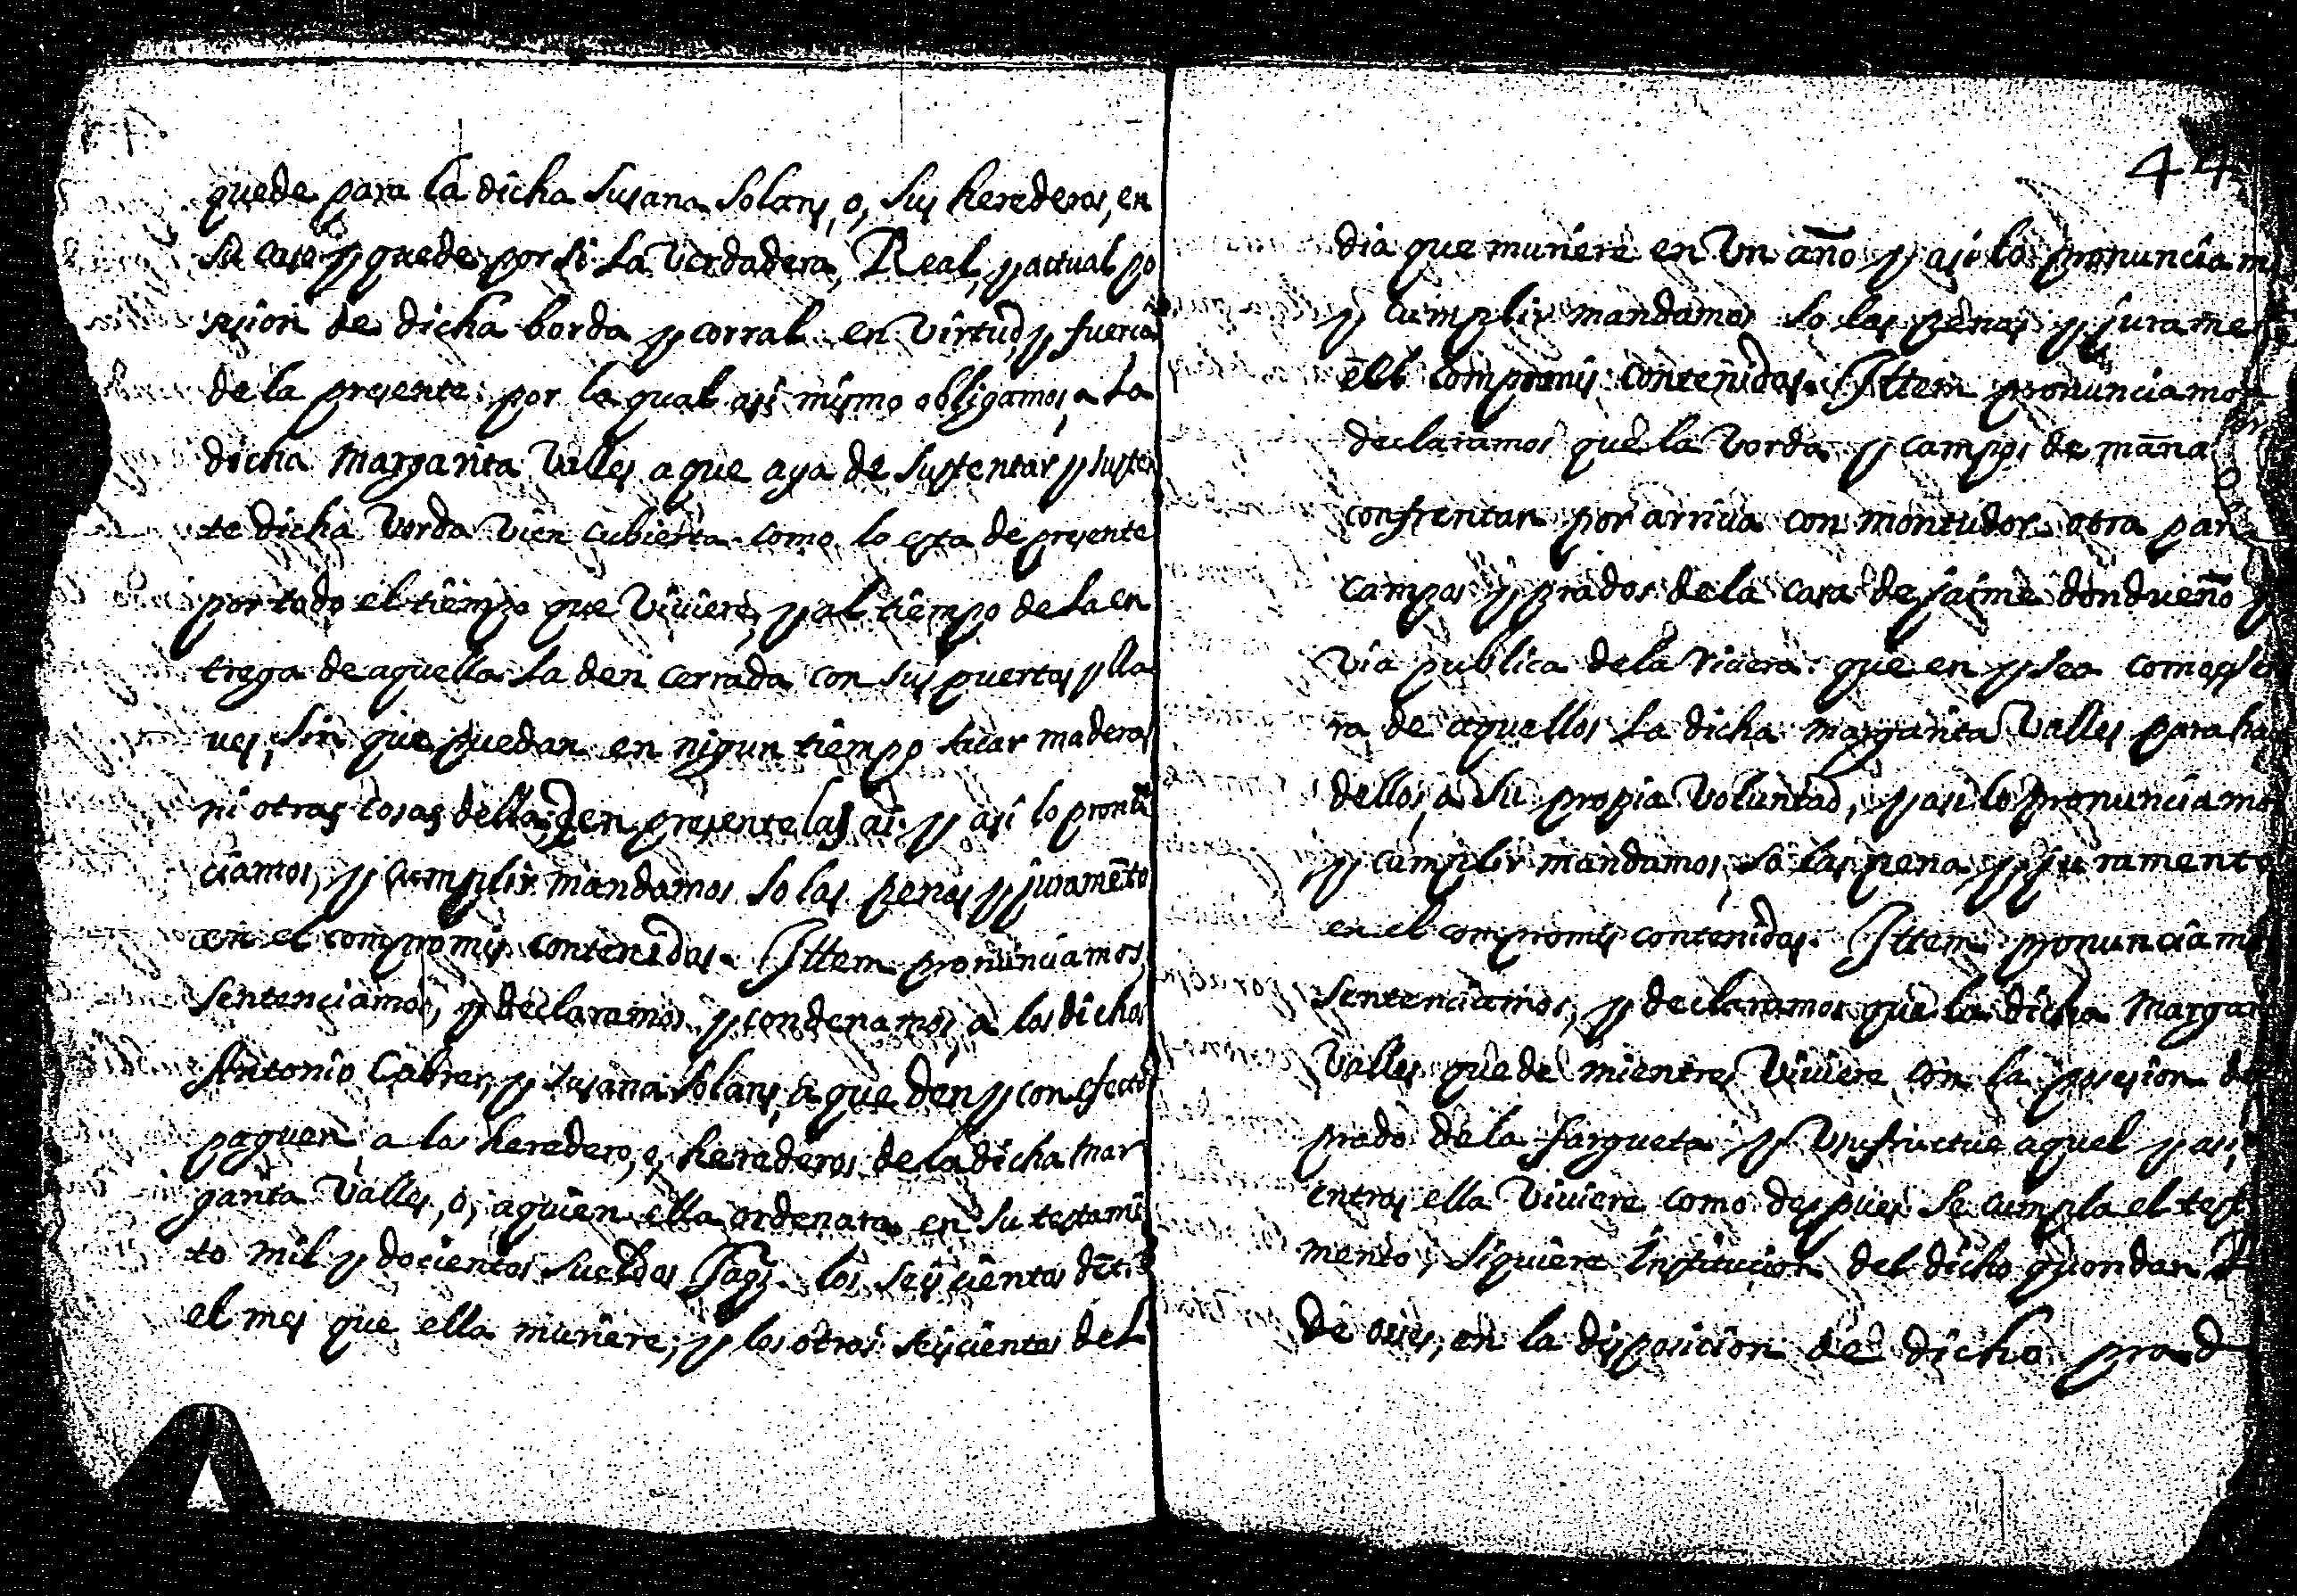 quede para la dicha Susana Solans, o, sus herederos, en
su caso y quede por si la Verdadera, Real, y actual po
sesion de dicha borda y corral en virtud y fuercia
de la presente por la qual asi mismo obligamos a la
dicha Margarita Valles a que aya de sustentar y susten
te dicha Vorda vien cubierta como lo esta de presente
por todo el tiempo que Viviere, y al tiempo de la en
trega de aquella la den cerrada con sus puertas y lla
ues, sin que puedan en nigun tiempo sacar maderas
ni otras cosas della, q en presente las ai y asi lo pronū
ciamos, y cumplir mandamos so las penas y juramēto
en el compromis contenidas. Ittem pronunciamos,
sentenciamos, y declaramos y condenamos a los dichos
Antonio Cabrer, y Susana Solans, a que den y con efecto
paguen a los heredero, o, herederos de la dicha Mar
garita Valles, o, a quien ella ordenara en su testamē
to mil y docientos sueldos Jaqs. los seiscientos dēt.o
el mes que ella muriere; y los otros seiscientos del
44
dia que muriere en Vn año y asi lo pronunciam
y cumplir mandamos so las penas y jurame
ell compromis contenidas. Ittem pronunciamos
declaramos que la Vorda y campos de mañā
confrentan por arriva con montudor otra par
campos y prados de la casa de jaime don dueño y
via publica de la Rivera que en y sea como
ra de aquellos la dicha Margarita Valles para ha
dellos, a su propia Voluntad, y asi lo pronunciamos
y cumplir mandamos, so las pena y juramento
en el compromis contenidas. Ittem pronunciamos
sentenciamos, y declaramos que la dicha Margari
Valles quede mientres Viviere con la posesion de
prado de la fargueta y Vnsfructue aquel y asi
entras ella Viviere como despues se cumpla el test
mento, siquiere Institucion del dicho quondan
de oies, en la disposicion de dicho prad